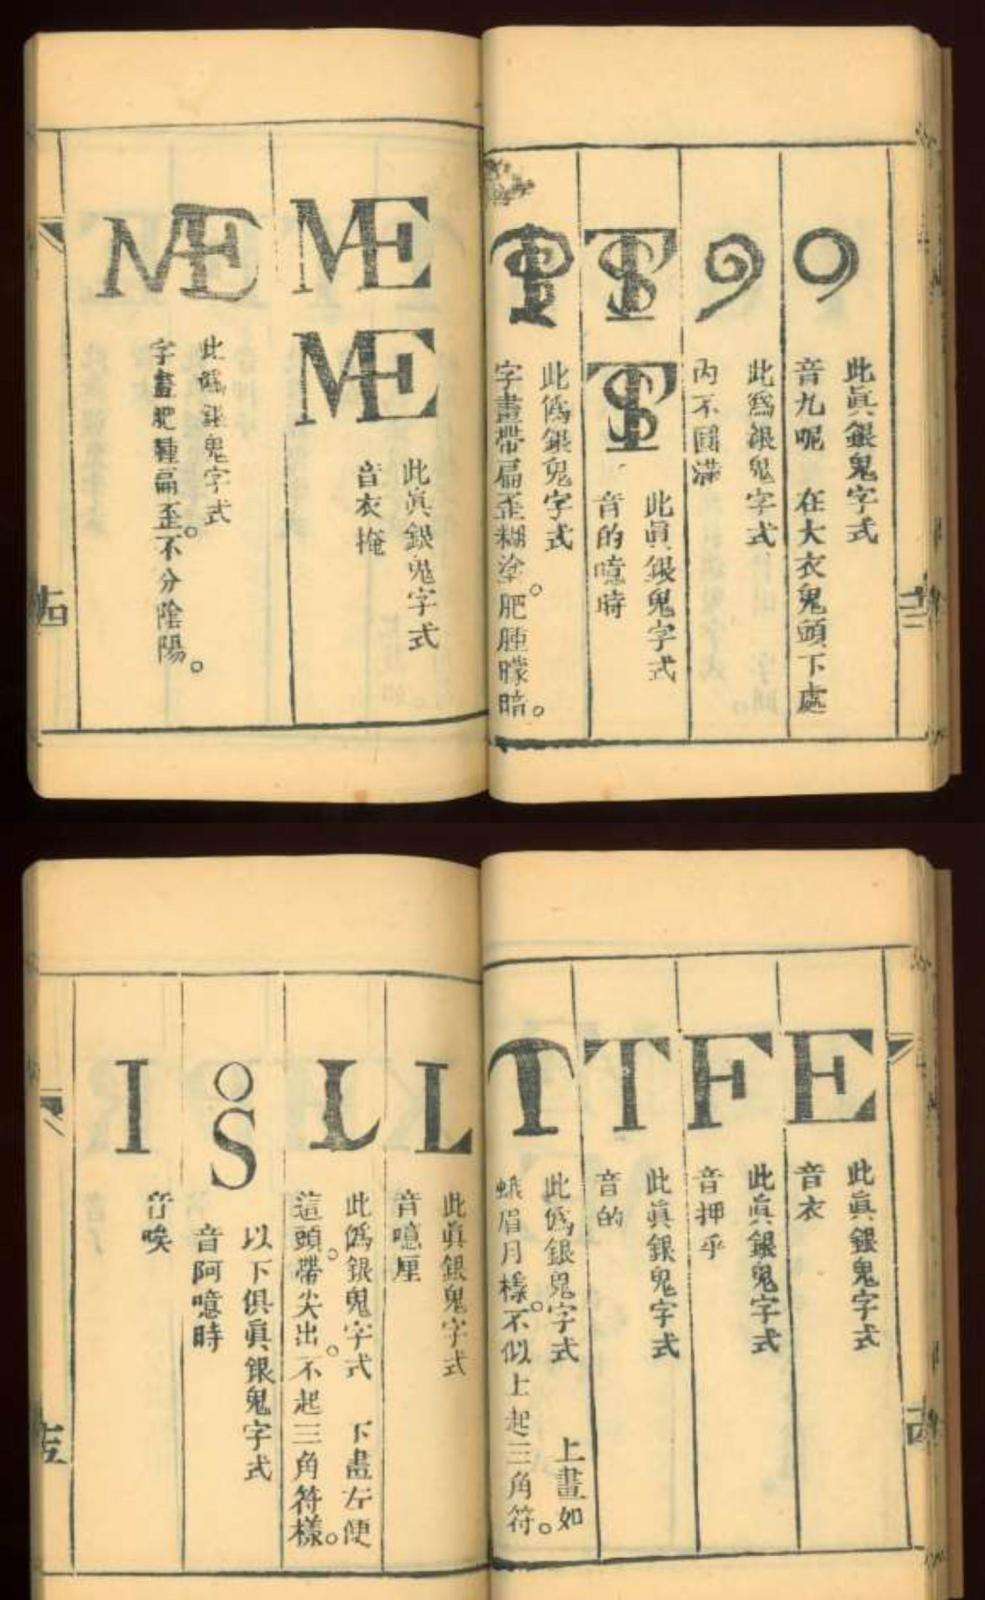 9
此眞銀鬼字式
音九呢 在大衣鬼頭下處
9
此僞銀鬼字式
內不圓滿
TS
TS
此眞銀鬼字式
音的噫時
此僞銀鬼字式
字畫帶扁歪糊塗。肥腫朦暗。
ME
ME
此眞銀鬼字式
音衣掩
ME
此僞銀鬼字式
字畫肥腫扁歪。不分陰陽。
E
此眞銀鬼字式
音衣
F
此眞銀鬼字式
音押乎
T
此眞銀鬼字式
音的
T
此僞銀鬼字式 上畫如
蛾眉月樣。不似上起三角符。
L
此眞銀鬼字式
音噫厘
L
此僞銀鬼字式 下畫左便
這頭帶尖出。不起三角符樣。
oS
以下俱眞銀鬼字式
音阿噫時
I
音唉